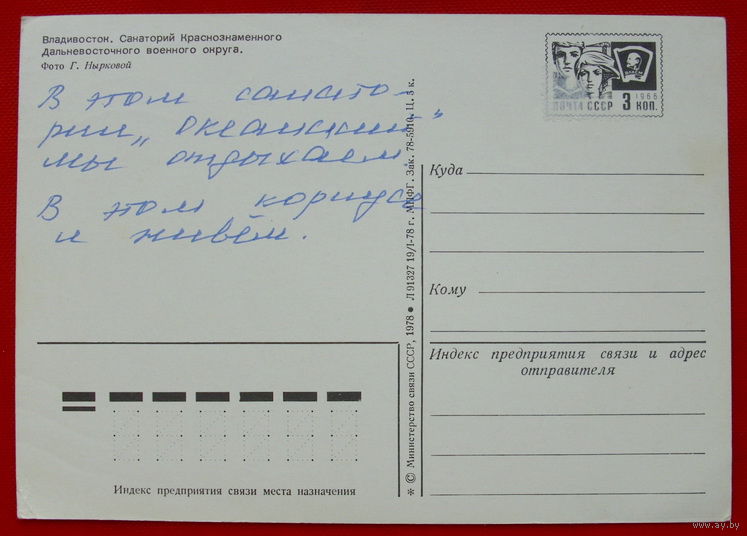 Владивосток. Санаторий Краснознаменного
Дальневосточного военного округа.
Фото Г. Нырковой
В этом санато-
рии „Океанский“
мы отдыхаем.
В этом корпусе
и живём.
1966
ПОЧТА СССР 3 КОП.
Куда
Кому
Индекс предприятия связи и адрес
отправителя
Индекс предприятия связи места назначения
* © Министерство связи СССР, 1978 ● Л 91327 19/I-78 г. МПФГ. Зак. 78-5910. Ц. 3 к.
www.ay.by